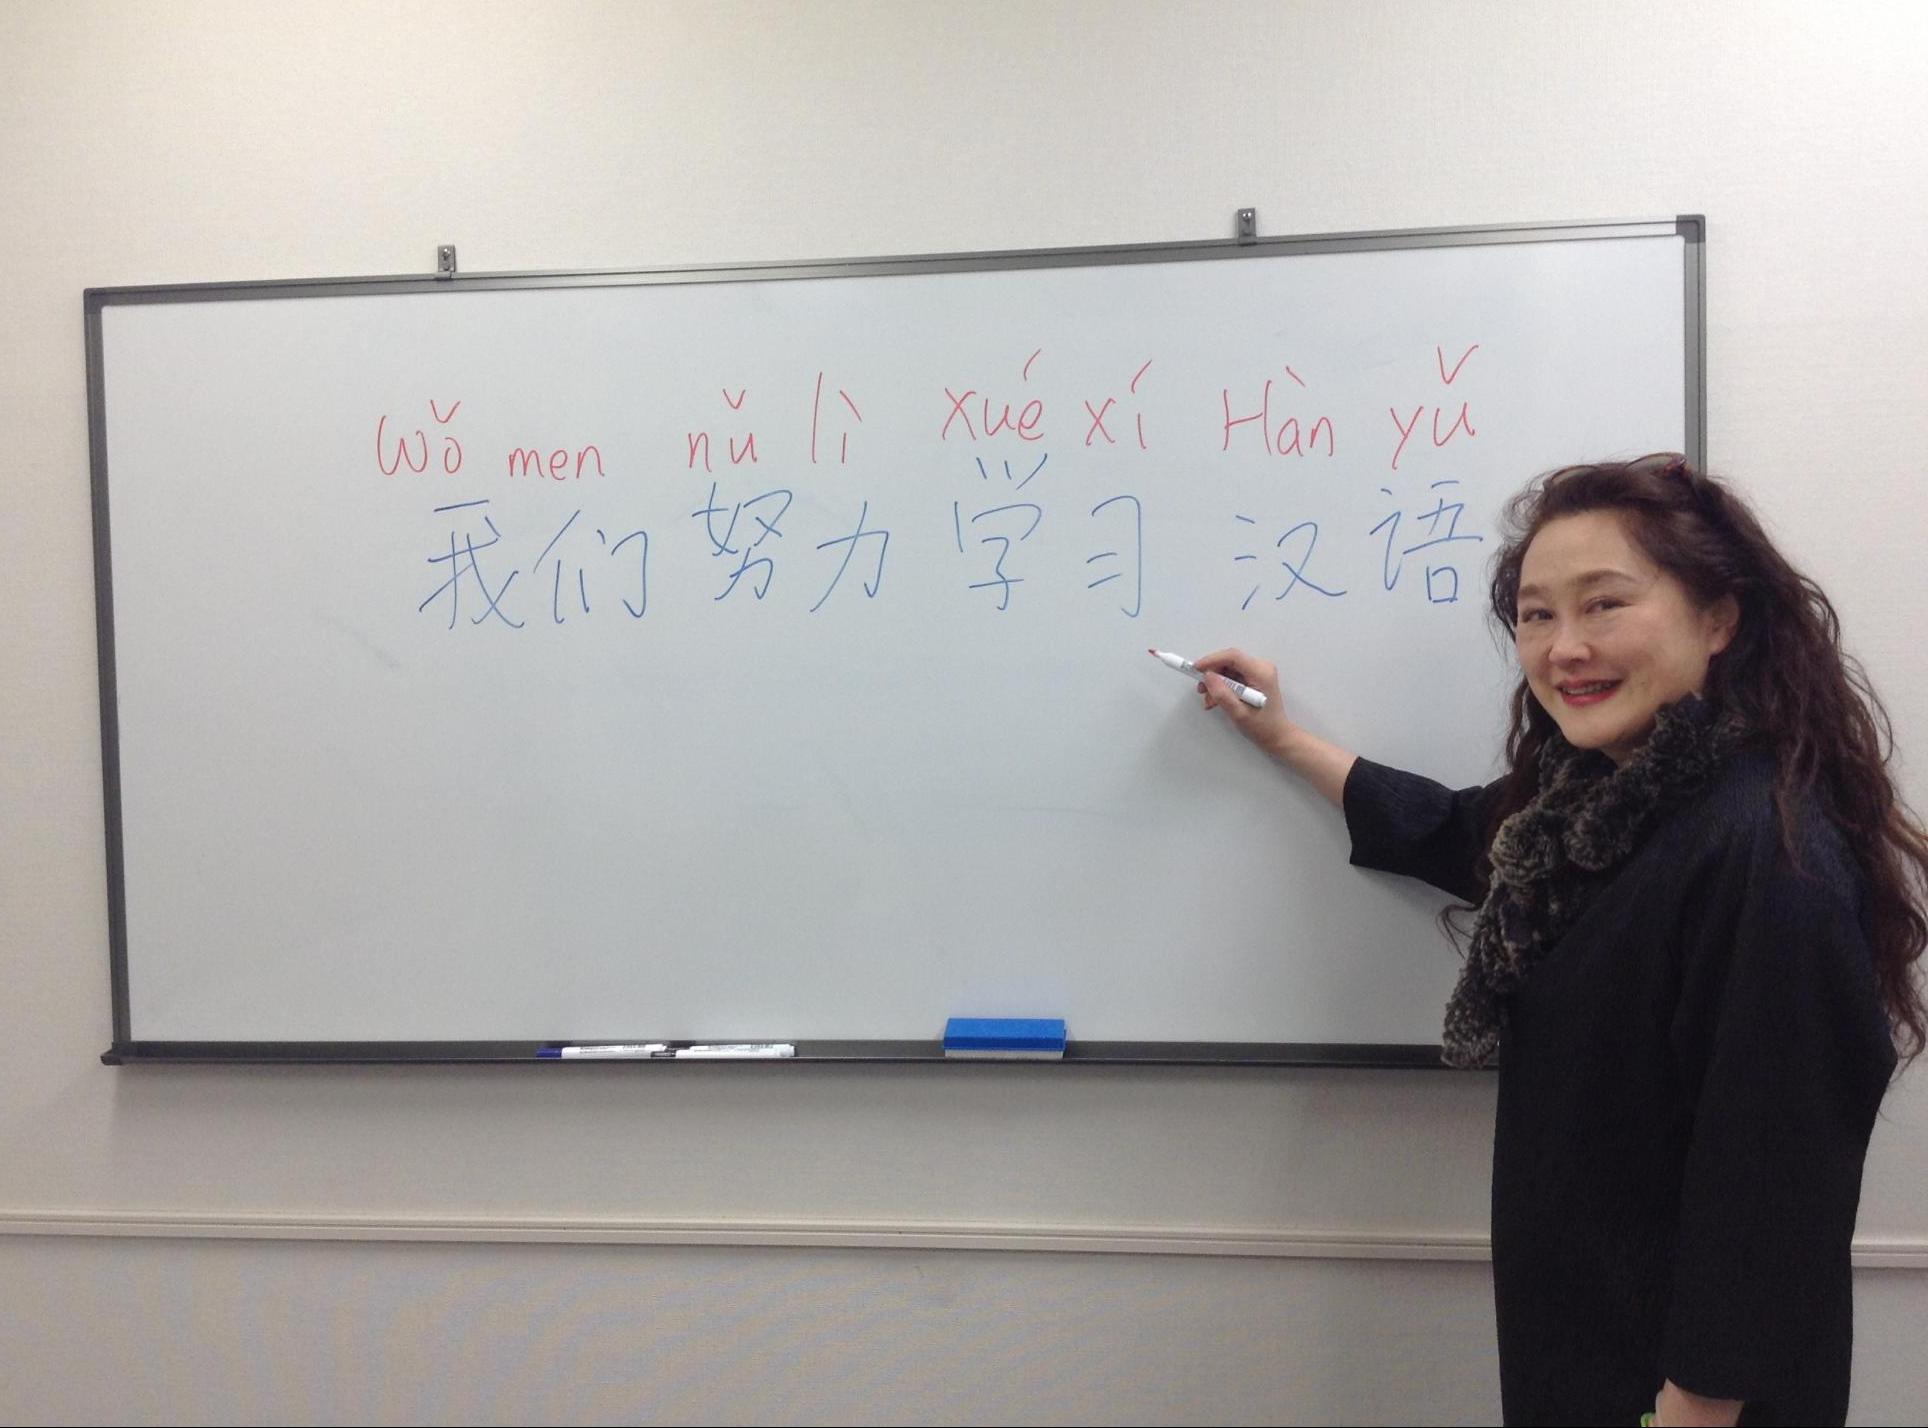 Wǒ men nǔ lì xué xí Hàn yǔ
我们努力学习汉语